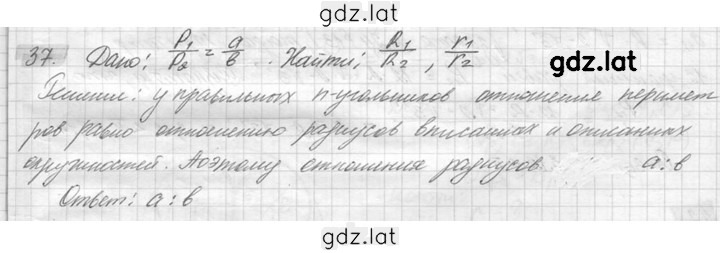 gdz.lat
37. Дано: P₁/P₂ = a/b. Найти: R₁/R₂, r₁/r₂
gdz.lat
Решение: у правильных n-угольников отношение перимет
ров равно отношению радиусов вписанных и описанных
окружностей. Поэтому отношения радиусов a:b
Ответ: a:b
gdz.lat
gdz.lat